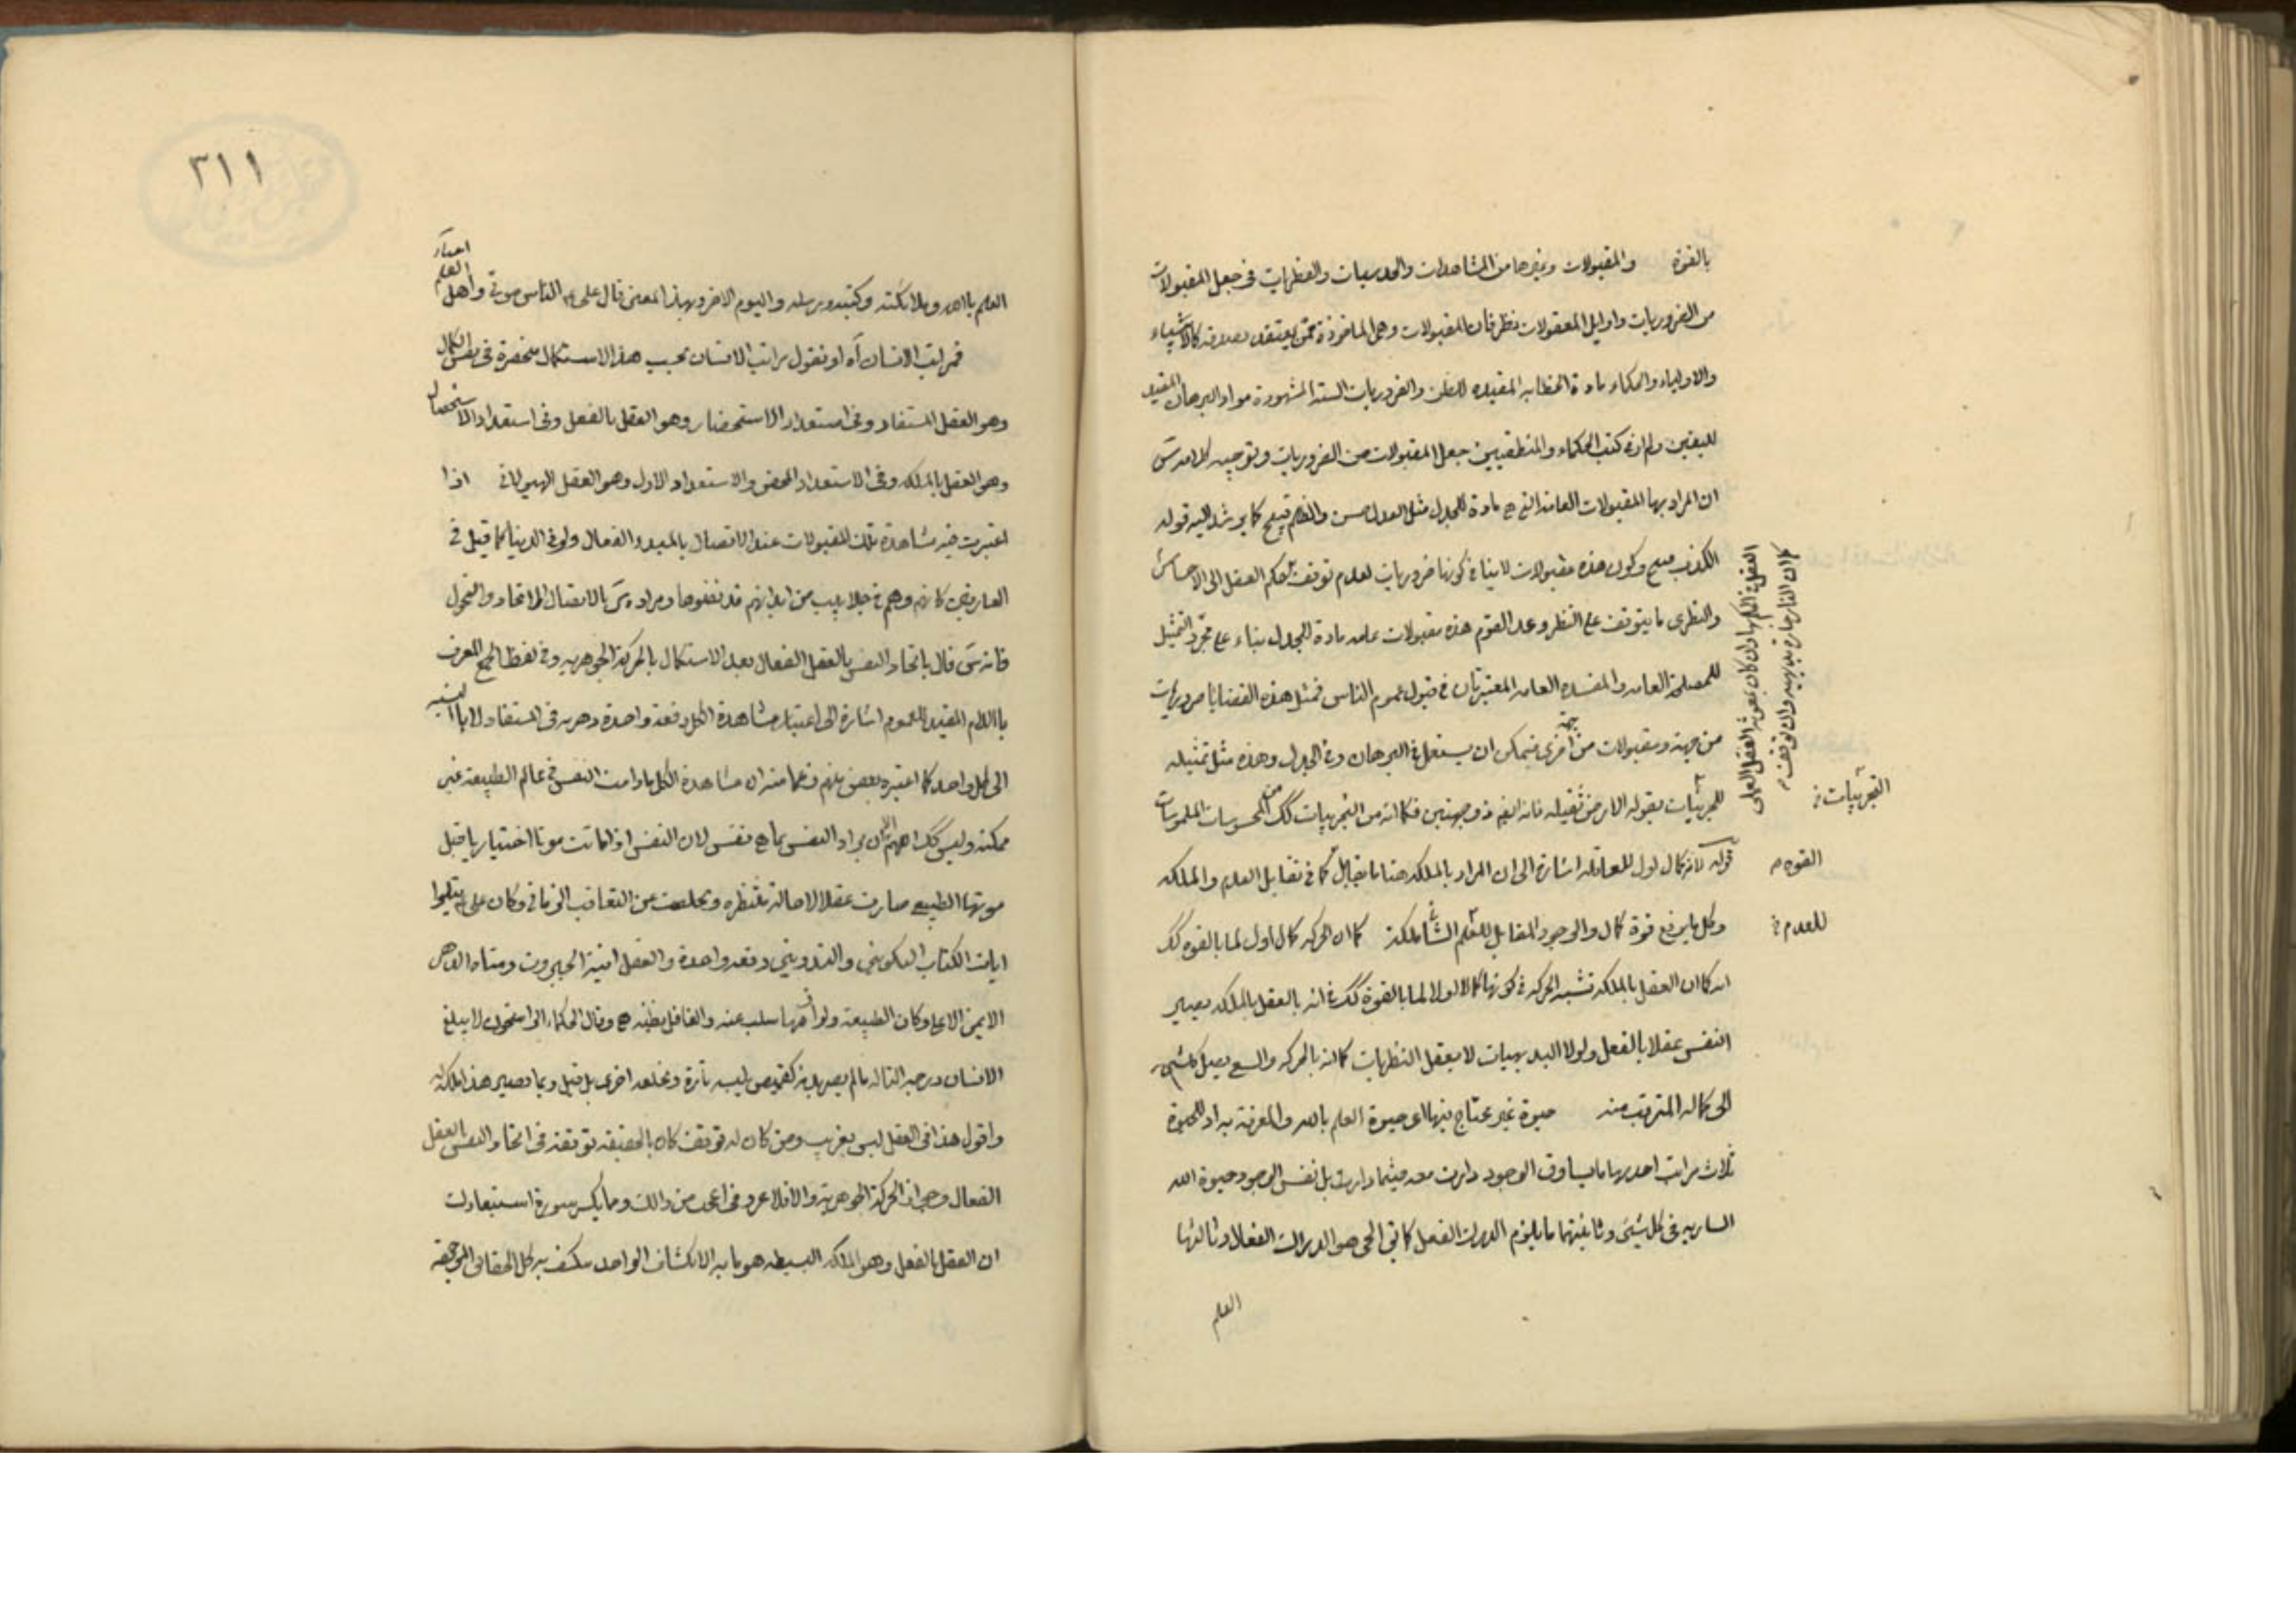 بالقوة والمقبولات وغيرها من المشاهدات والحدسيات والفطريات في جعل المقبولات
من الضروريات واوايل المعقولات نظر فان المقبولات وهي الماخوذة ممن يعتقد صدقه كالانبياء
والاولياء والحكماء مادة الخطابه المفيده للظن والضروريات الستة المشهورة مواد البرهان المفيد
لليقين ولم ار في كتب الحكماء والمنطقيين جعل المقبولات من الضروريات وتوجيه كلامه س
ان المراد بها المقبولات العامة التي هي مادة للجدل مثل العدل حسن والظلم قبيح كما يرشد اليه قوله
الكذب قبيح وكون هذه مقبولات لاينافي كونها ضروريات لعدم توقف حكم العقل الى الاحساس
والنظرى ما يتوقف على النظر وعد القوم هذه مقبولات عامه مادة للجدل بناء على مجرد التمثيل
للمصلحة العامه والمفسده العامه المعتبرتان في قبول عموم الناس فمثل هذه القضايا ضروريات
من جهة ومقبولات من جهة اخرى فيمكن ان يستعمل في البرهان وفي الجدل وهذه مثل تمثيله
للتجربيات بقوله الارض ثقيله فانه ايضا ذو جهتين فكما انه من التجربيات كك من المحسوسات الملموسات
قوله لانه كمال اول للعاقله اشارة الى ان المراد بالملكه هنا ما يقابل كما في تقابل العدم والملكه
وكل ما يرفع قوة كمال والوجود المقابل للعدم الشاني ملكة كما ان الحركه كمال اول لما بالقوه كك
انه كما ان العقل بالملكه تشبه الحركه في كونها كمالا اولا لما بالقوة كك في انه بالعقل بالملكه يصير
النفس عقلا بالفعل ولولا البديهيات لا يعقل النظريات كما انه بالحركه والسعى يصل كل شيء
الى كماله المترقب منه حيوة غير محتاج فيها اى حيوة العلم بالله والمعرفة به اذ للحيوة
ثلاث مراتب احديها ما يساوق الوجود دارت معه حيثما دارت بل نفس الوجود حيوة الله
الساريه في كل شيئ وثانيتها ما يلزم الدرك والفعل كما في الحى هو الدراك الفعال وثالثها
العلم
العقل في الحكم بها وان كان بمعونة العقل العملى
كما ان النار حارة بديهية وان توقف
التجربيات
القوه
للعدم
٣١١
العلم بالله وملائكته وكتبه ورسله واليوم الاخر وبهذا المعنى قال على ع الناس موتى واهل العلم احياء
فمراتب الانسان اه او نقول مراتب الانسان بحسب هذا الاستكمال منحصرة في نفس الكمال
وهو العقل المستفاد وفي استعداد الاستحضار وهو العقل بالفعل وفي استعداد الاستحصال
وهو العقل بالملكه وفي الاستعداد المحض والاستعداد الاول وهو العقل الهيولانى اذا
اعتبرت فيه مشاهدة تلك المقبولات عند الاتصال بالمبدء الفعال ولو في الدنيا كما قيل في
العارفين كانهم وهم في جلابيب من ابدانهم قد نفضوها ومراده س بالاتصال الاتحاد والتحول
فانه س قال باتحاد النفس بالعقل الفعال بعد الاستكمال بالحركة الجوهريه وفي لفظ الجمع المعرف
باللام المفيد للعموم اشارة الى اعتبار مشاهدة الكل دفعة واحدة دهريه في المستفاد لا بالنسبه
الى كل واحد كما اعتبره بعض منهم فزعما منه ان مشاهدة الكل مادامت النفس في عالم الطبيعه غير
ممكنه وليس كك اللهم الا ان يراد النفس بما هي نفس لان النفس اذا ماتت موتا اختياريا قبل
موتها الطبيعى صارت عقلا لا حالة منتظره وتخلصت عن التعاقب الزمانى وكان على ع يتلوا
ايات الكتاب التكوينى والتدوينى دفعه واحدة والعقل انية الجبروت ومتاه الدهر
الايمن الاعلى وكان الطبيعه ولوازمها سلب عنه والغافل يظنه هي وقال الحكماء الراسخون لا يبلغ
الانسان درجة التاله ما لم يصر بدنه كقميص يلبسه تارة ويخلعه اخرى بل قيل ربما يصير هذا ملكة له
واقول هذا في العقل ليس بغريب ومن كان له توقف كان بالحقيقه توقفه في اتحاد النفس بالعقل
الفعال وهى اذ الحركة الجوهرية والافلا غرو في اعجب من ذلك ومما يكسر سورة استبعادك
ان العقل بالفعل وهو الملكه البسيطه هو ما به الانكشاف الواحد ينكشف به كل الحقائق الموجوده